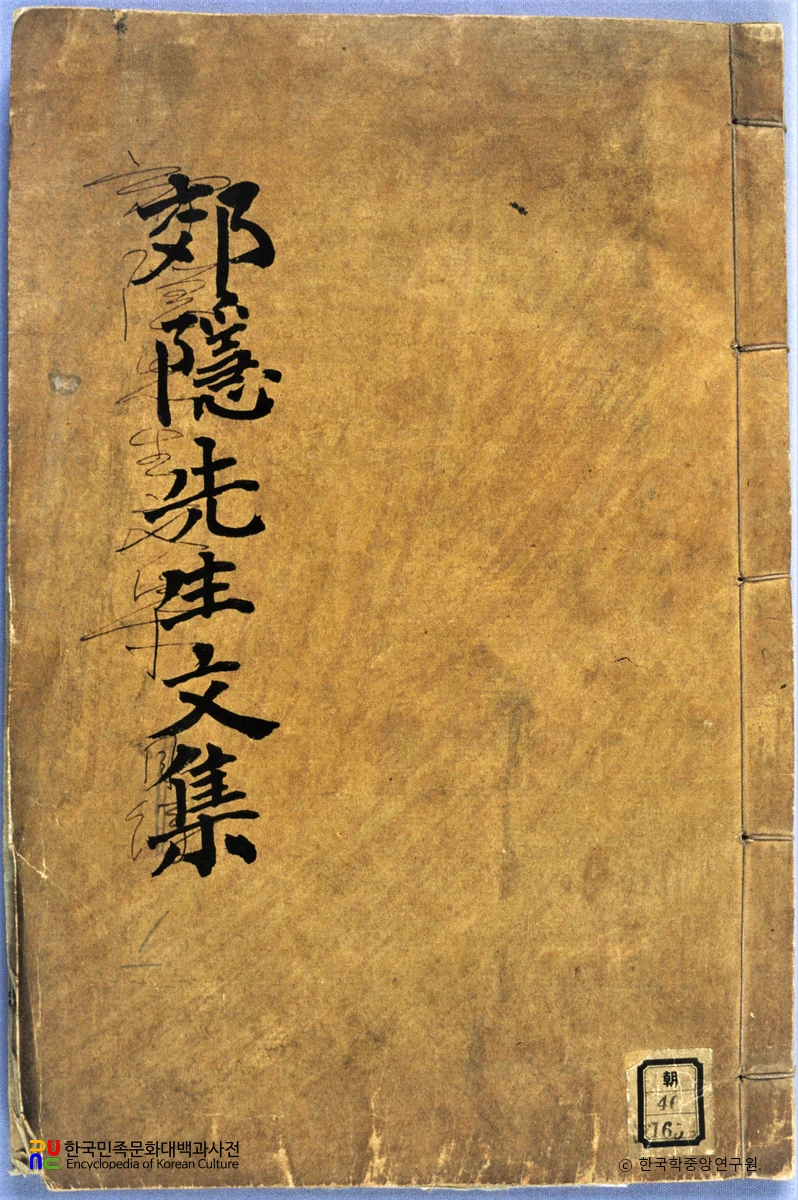 郊隱先生文集
朝
46
한국민족문화대백과사전
Encyclopedia of Korean Culture
© 한국학중앙연구원.